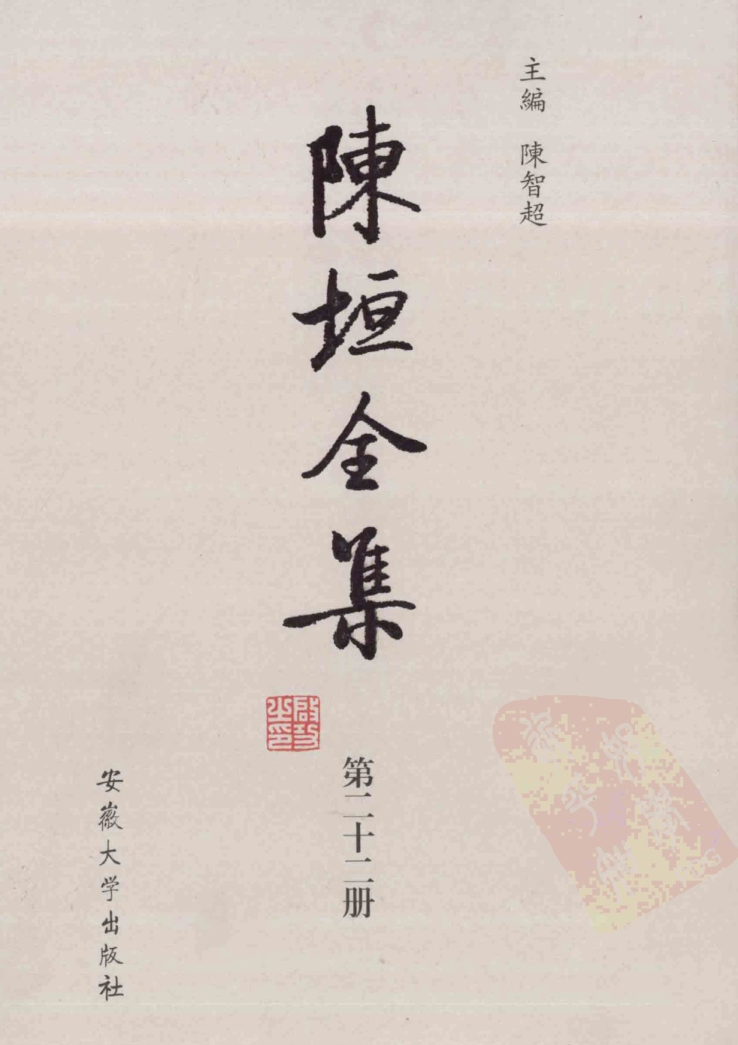 主編 陳智超
陳垣全集
啟功之印
第二十二册
安徽大学出版社